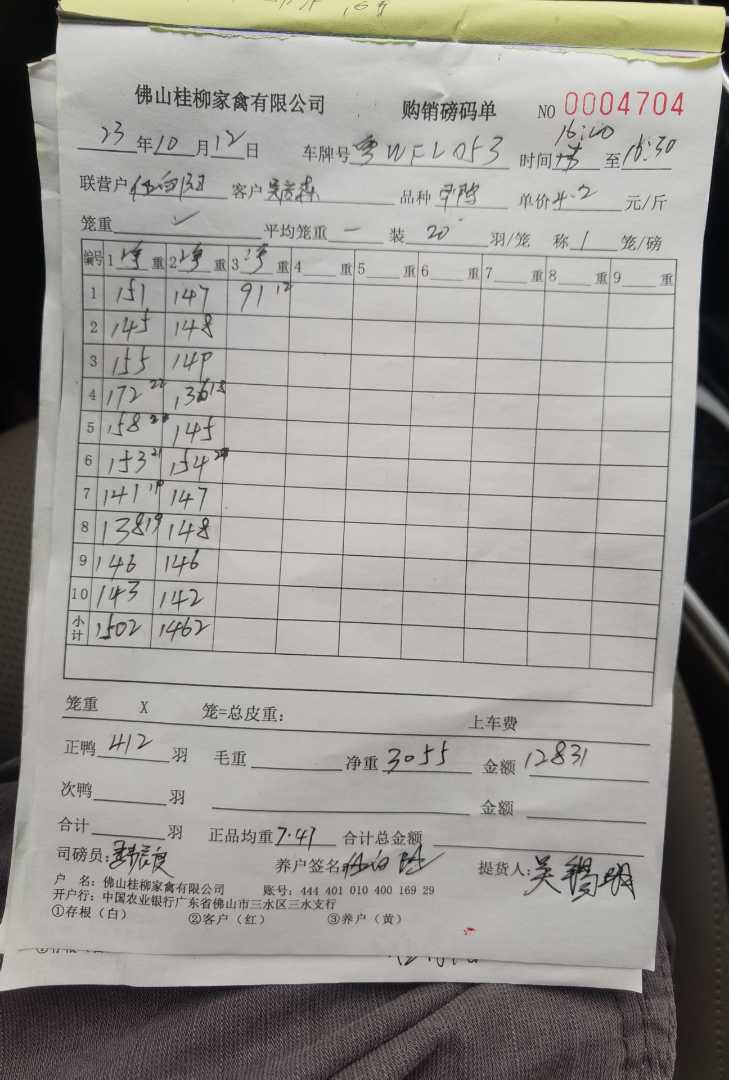 佛山桂柳家禽有限公司 购销磅码单 NO 0004704
16:00
23年10月12日 车牌号粤WFL053 时间 至16:30
联营户 客户 品种 单价4.2元/斤
笼重 平均笼重一 装20羽/笼 称1笼/磅
编号 1净重 2净重 3净重 4重 5重 6重 7重 8重 9重
1 151 147 91 12
2 145 148
3 155 149
4 172 22 136 18
5 158 145
6 153 21 154
7 141 19 147
8 138 19 148
9 146 146
10 143 142
小计 1502 1462
笼重 X 笼=总皮重: 上车费
正鸭412羽 毛重 净重3055 金额12831
次鸭 羽 金额
合计 羽 正品均重7.41 合计总金额
司磅员: 养户签名 提货人:吴锡明
户 名:佛山桂柳家禽有限公司 账号:444 401 010 400 169 29
开户行:中国农业银行广东省佛山市三水区三水支行
①存根(白) ②客户(红) ③养户(黄)